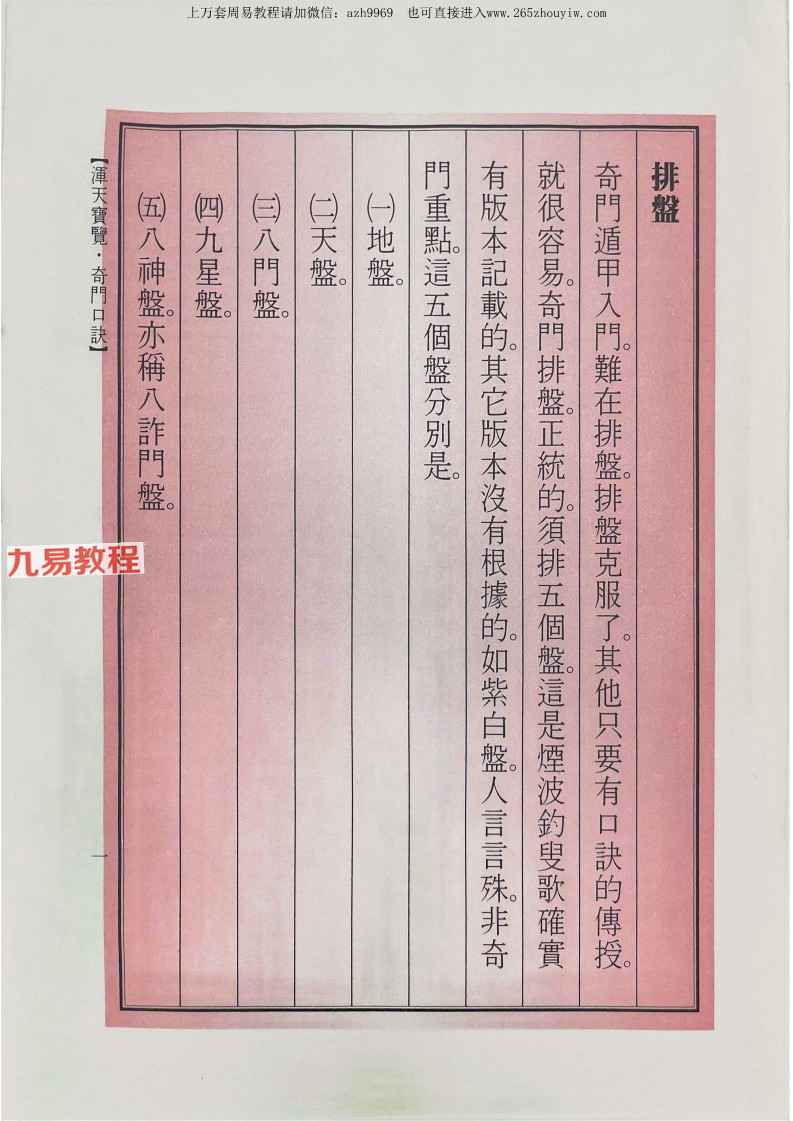 上万套周易教程请加微信：azh9969 也可直接进入www.265zhouyiw.com
排盤
奇門遁甲入門。難在排盤。排盤克服了。其他只要有口訣的傳授。
就很容易。奇門排盤。正統的。須排五個盤。這是煙波釣叟歌確實
有版本記載的。其它版本沒有根據的。如紫白盤。人言言殊。非奇
門重點。這五個盤分別是。
㈠地盤。
㈡天盤。
㈢八門盤。
㈣九星盤。
㈤八神盤。亦稱八詐門盤。
【渾天寶覽·奇門口訣】
一
九易教程